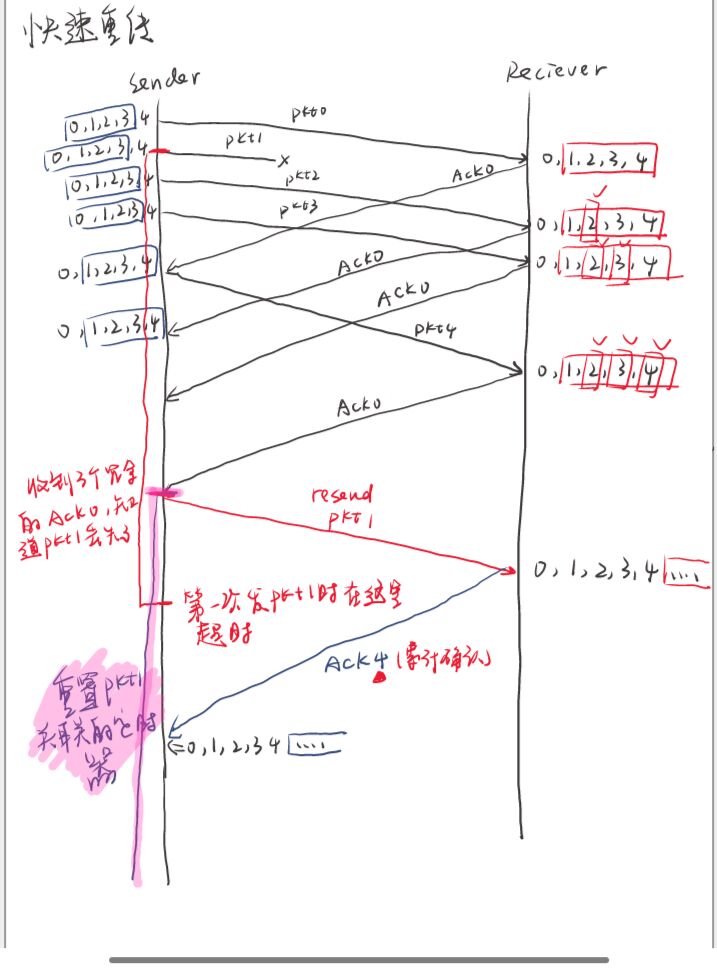 快速重传
Sender
Reciever
0,1,2,3,4
pkt0
0,1,2,3,4
pkt1
x
0,1,2,3,4
Ack0
0,1,2,3,4
pkt2
0,1,2,3,4
pkt3
0,1,2,3,4
0,1,2,3,4
0,1,2,3,4
Ack0
Ack0
0,1,2,3,4
pkt4
0,1,2,3,4
Ack0
收到3个冗余
的Ack0,知
道pkt1丢失了
resend
pkt1
0,1,2,3,4 ....
第一次发pkt1时在这里
超时
ACK4(累计确认)
重置pkt1
关联的定时
器
0,1,2,3 4 ....